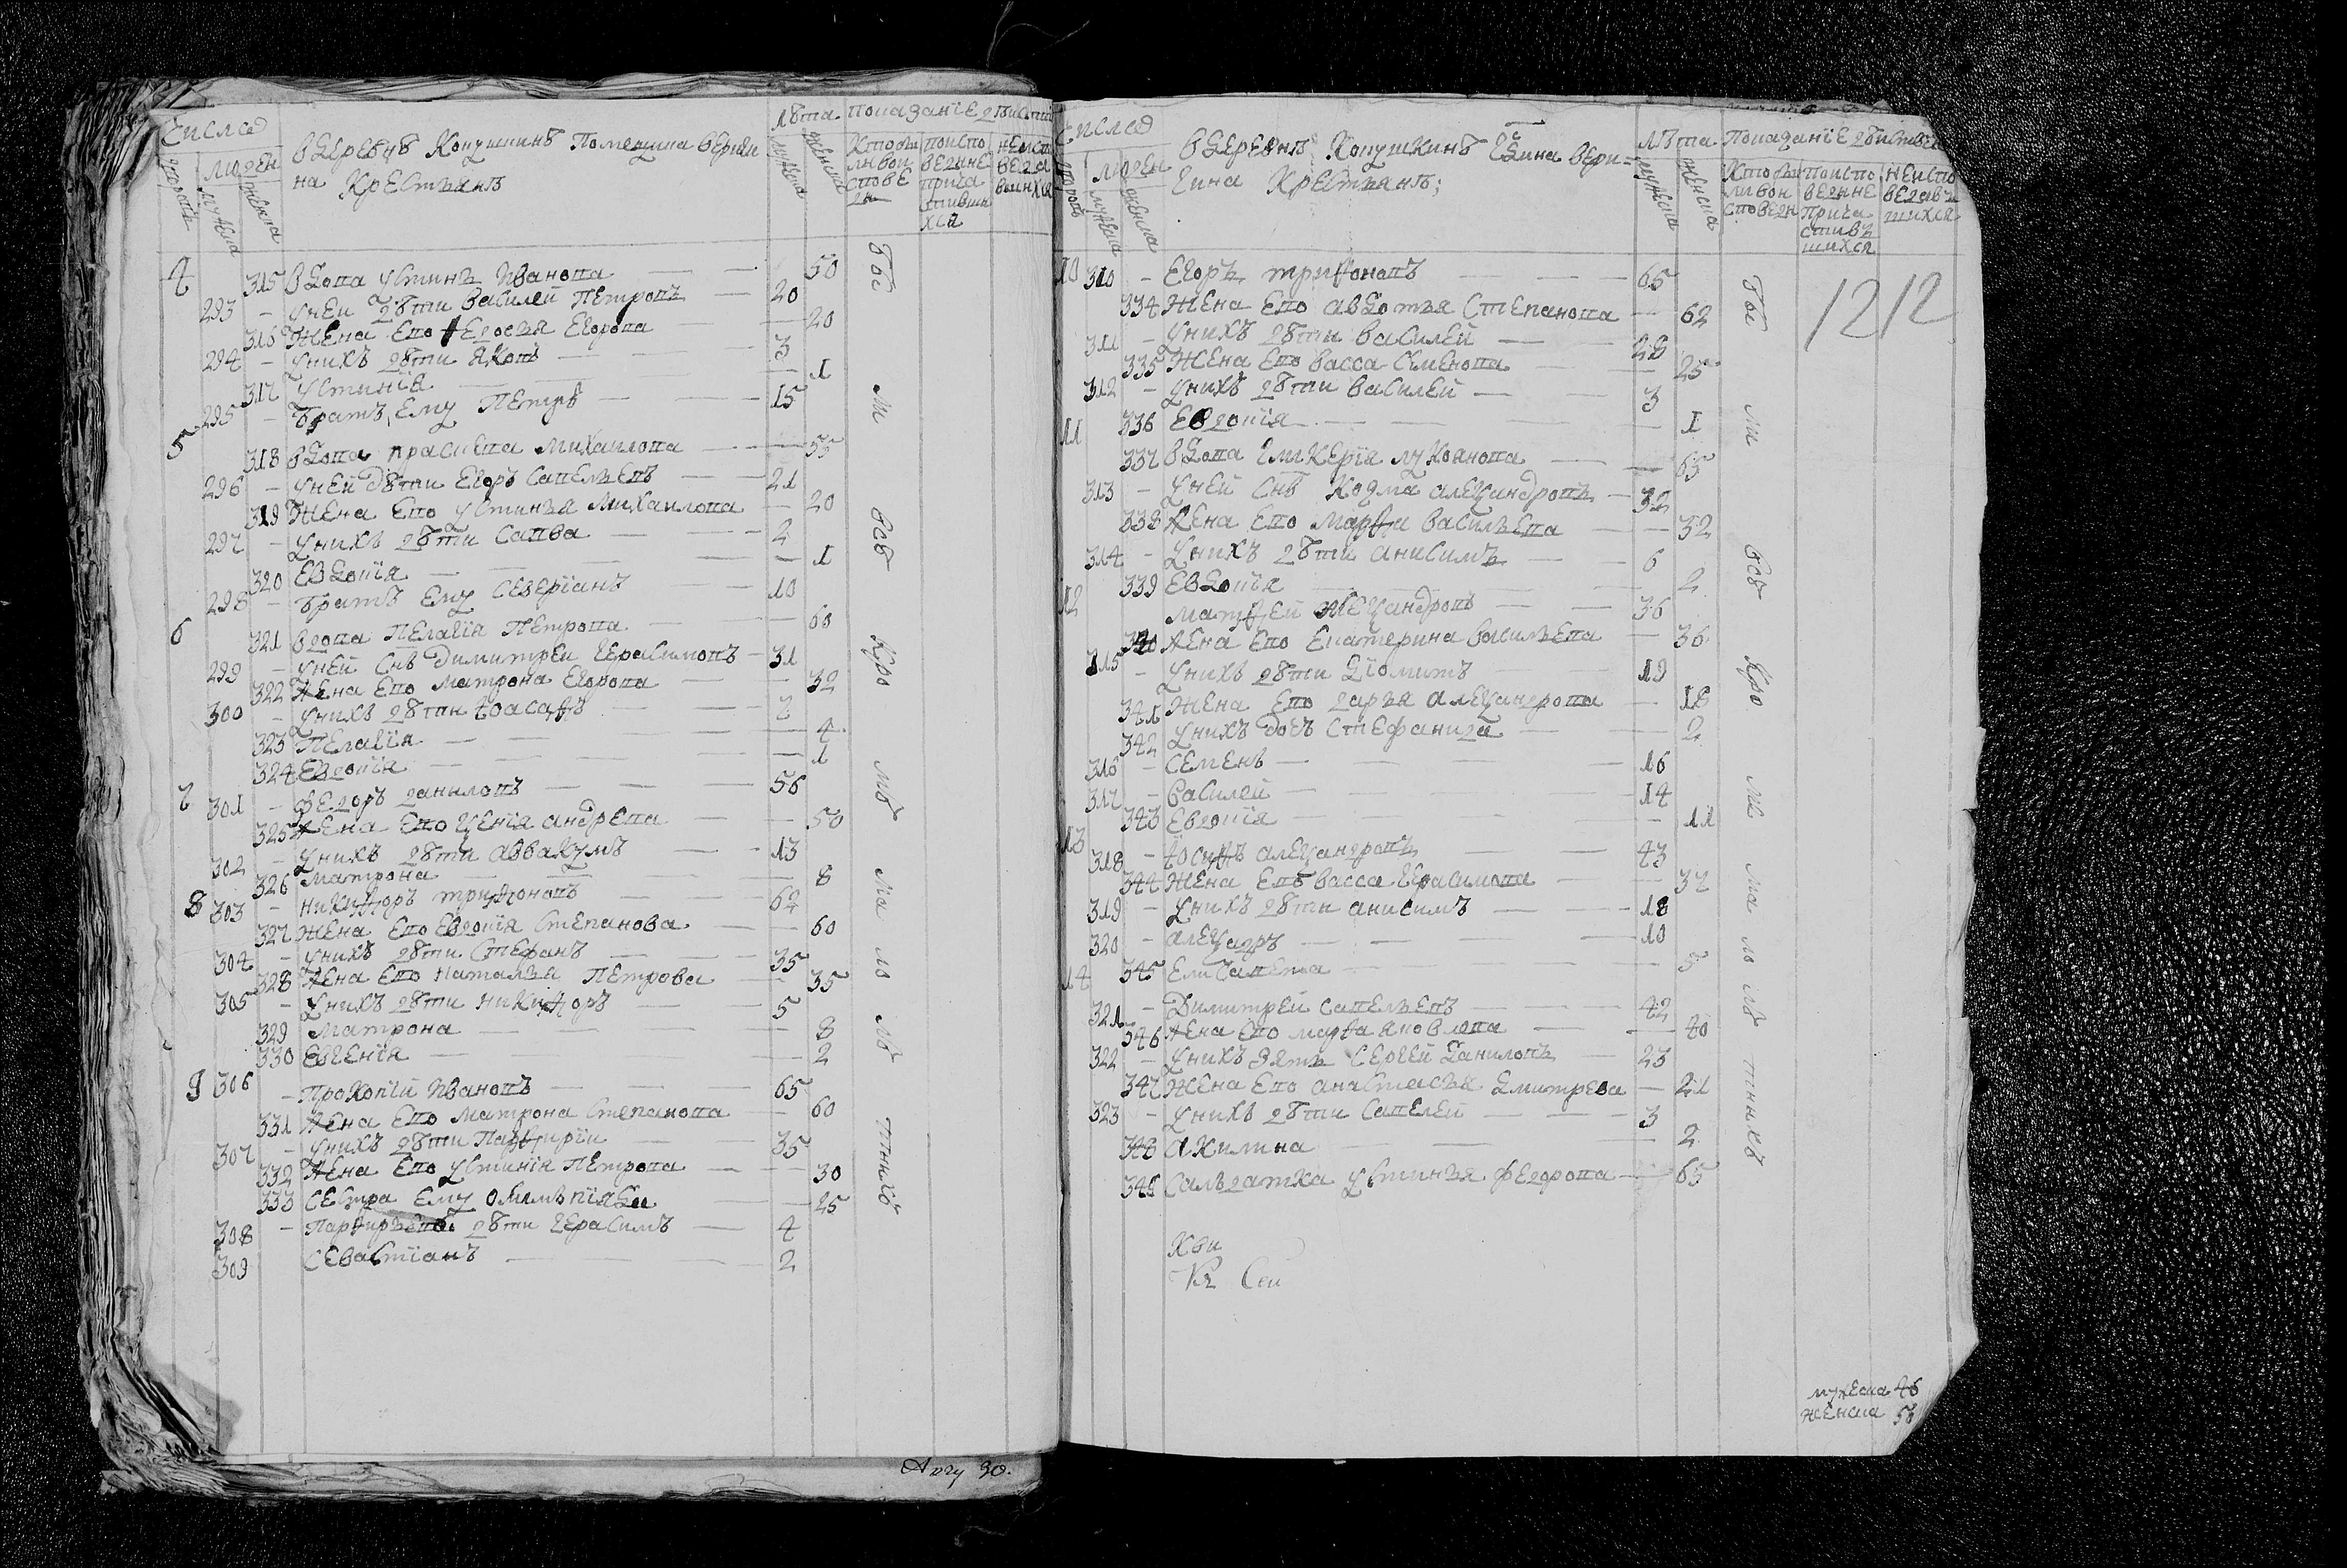 Число
дворовъ
людей
мужеска
женска
в деревнѣ Копушкинѣ Помещика Вериги
на Крестьянъ
лѣта
мужеска
женска
показанїе действ
Кто бы
ли в ои
спове
ди
по испо
ведине
прича
стивши
хся
не испо
веда
вшихся
4 315 вдова Устинъя Иванова — 50
293 - у ней дѣти Василей Петровъ — 20
316 Жена ево Федосья Егорова — 20
294 - у нихъ дѣти Яковъ — 3
317 Устинїя — 1
295 - братъ ему Петръ — 15
5 318 вдова праскева Михаилова — 55
296 - у ней дѣти Егоръ Савельевъ — 21
319 Жена ево Устинья Михаилова — 20
297 - у нихъ дѣти Савва — 2
320 Евдокїя — 1
298 - братъ ему Северїанъ — 10
6 321 вдова Пелагїя Петрова — 60
299 - у ней снъ Димитреи Герасимовъ — 31
322 Жена ево Матрона Егорова — 32
300 - у нихъ дѣти Иоасафъ — 7
323 Пелагїя — 4
324 Евдокїя — 1
7 301 - Федоръ даныловъ — 56
325 Жена ево Ксенїя андреева — 50
302 - у нихъ дѣти Аввакумъ — 13
326 Матрона — 8
8 303 - Никифоръ трифоновъ — 62
327 Жена ево Евдокїя Степанова — 60
304 - у нихъ дѣти Стефанъ — 35
328 Жена ево Наталья Петрова — 35
305 - у нихъ дѣти Никифоръ — 5
329 Матрона — 8
330 Евгенїя — 2
9 306 - Прокопїй Ивановъ — 65
331 Жена ево Матрона Степанова — 60
307 - у нихъ дѣти Парфирїи — 35
332 Жена ево Устинїя Петрова — 30
333 Сестра ему Олимпїяда — 25
308 - Парфирьевы дѣти Герасимъ — 4
309 Севастїанъ — 2
Бы
ли
всѣ
кро
мѣ
ма
ло
лѣ
тнихъ
Авгу 30.
Число
дворовъ
людей
мужеска
женска
в деревнѣ Копушкинѣ Вери=
гина Крестьянъ;
лѣта
мужеска
женска
показанїе действ
Кто бы
ли в ои
споведи
по испо
ведине
прича
стивъ
шихся
не испо
ведавъ
шихся
1212
10 310 - Егоръ трифоновъ — 65
334 Жена ево авдотья Степанова — 62
311 - у нихъ дѣти Василей — 28
335 Жена ево Васса Семенова — 25
312 - у нихъ дѣти Василей — 3
336 Евдокїя — 1
11 337 вдова Гликерїя лукоянова — 65
313 - у ней снъ Козма александровъ — 32
338 Жена ево Марфа Васильева — 32
314 - у нихъ дѣти анисимъ — 6
339 Евдокїя — 2
12 Матфей Александровъ — 36
340 Жена ево Екатерина Васильева — 36
315 - у нихъ дѣти Дїомитъ — 19
341 Жена ево дарья Александрова — 18
342 у нихъ дочь Стефанида — 2
316 - Семенъ — 16
317 - Василей — 14
343 Евдокїя — 11
13 318 - Иосифъ александровъ — 43
344 Жена ево Васса Герасимова — 37
319 - у нихъ дѣти анисимъ — 18
320 - алекѕадръ — 10
345 Елисавета — 5
14 321 - Димитрей Савельевъ — 42
346 Жена ево марфа яковлева — 40
322 - у нихъ зять Сергей Даниловъ — 23
347 Жена ево анастасья дмитрева — 21
323 - у нихъ дѣти Савелей — 3
348 Акилина — 2
349 Салъдатка Устинья Федорова — 65
Бы
ли
всѣ
кро
ме
ма
ло
лѣ
тнихъ
мужеска 46
женска 56